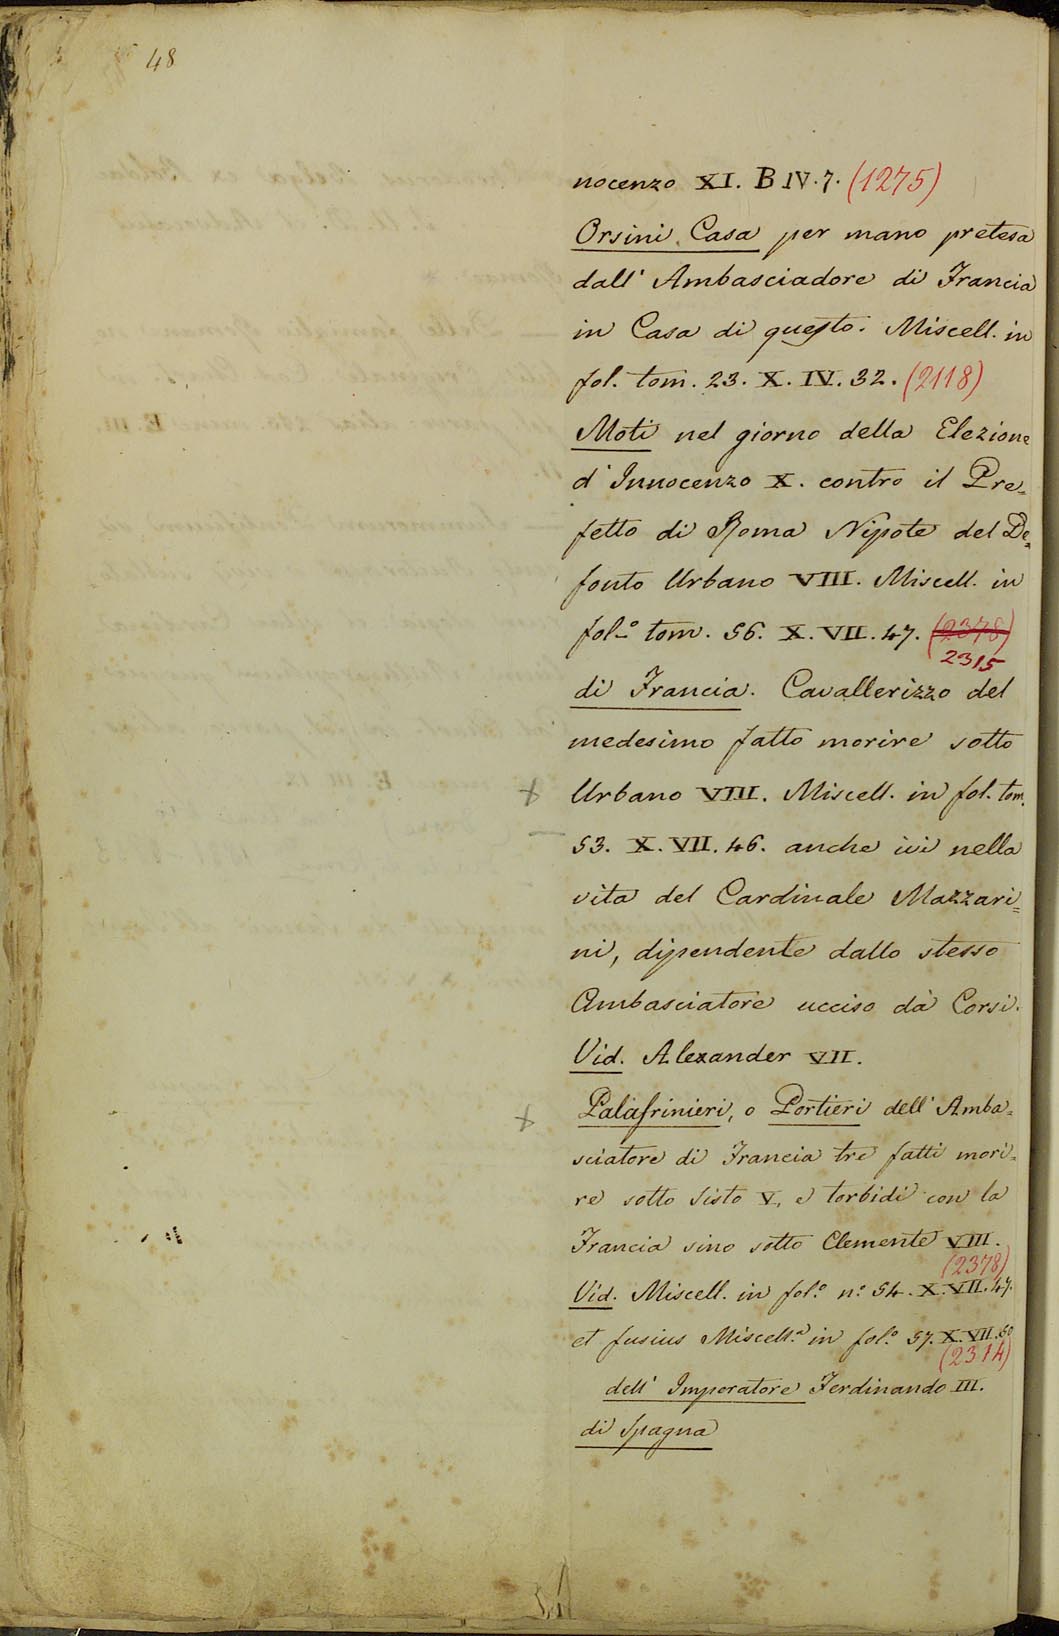 48
nocenzo XI. B IV. 7. (1275)
Orsini Casa per mano pretesa
dall' Ambasciadore di Francia
in Casa di questo. Miscell. in
fol. tom. 23. X. IV. 32. (2118)
Moti nel giorno della Elezione
d' Innocenzo X. contro il Pre=
fetto di Roma Nipote del De=
fonto Urbano VIII. Miscell. in
fol.º tom. 56. X. VII. 47. (2378)
2315
di Francia. Cavallerizzo del
medesimo fatto morire sotto
+ Urbano VIII. Miscell. in fol. tom.
53. X. VII. 46. anche ivi nella
vita del Cardinale Mazzari=
ni, dipendente dallo stesso
Ambasciatore ucciso dà Corsi.
Vid. Alexander VII.
+ Palafrinieri, o Portieri dell' Amba=
sciatore di Francia tre fatti mori=
re sotto Sisto V, e torbidi con la
Francia sino sotto Clemente VIII.
(2378)
Vid. Miscell. in fol.º n.º 54. X. VII. 47.
et fusius Miscell.ª in fol.º 57. X. VII. 50
(2314)
dell' Imperatore Ferdinando III.
di Spagna